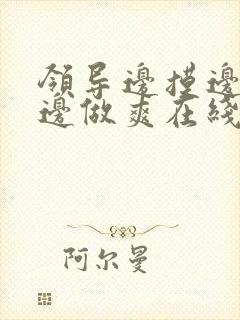 領导邊摸邊
邊做爽在綫
阿尔曼